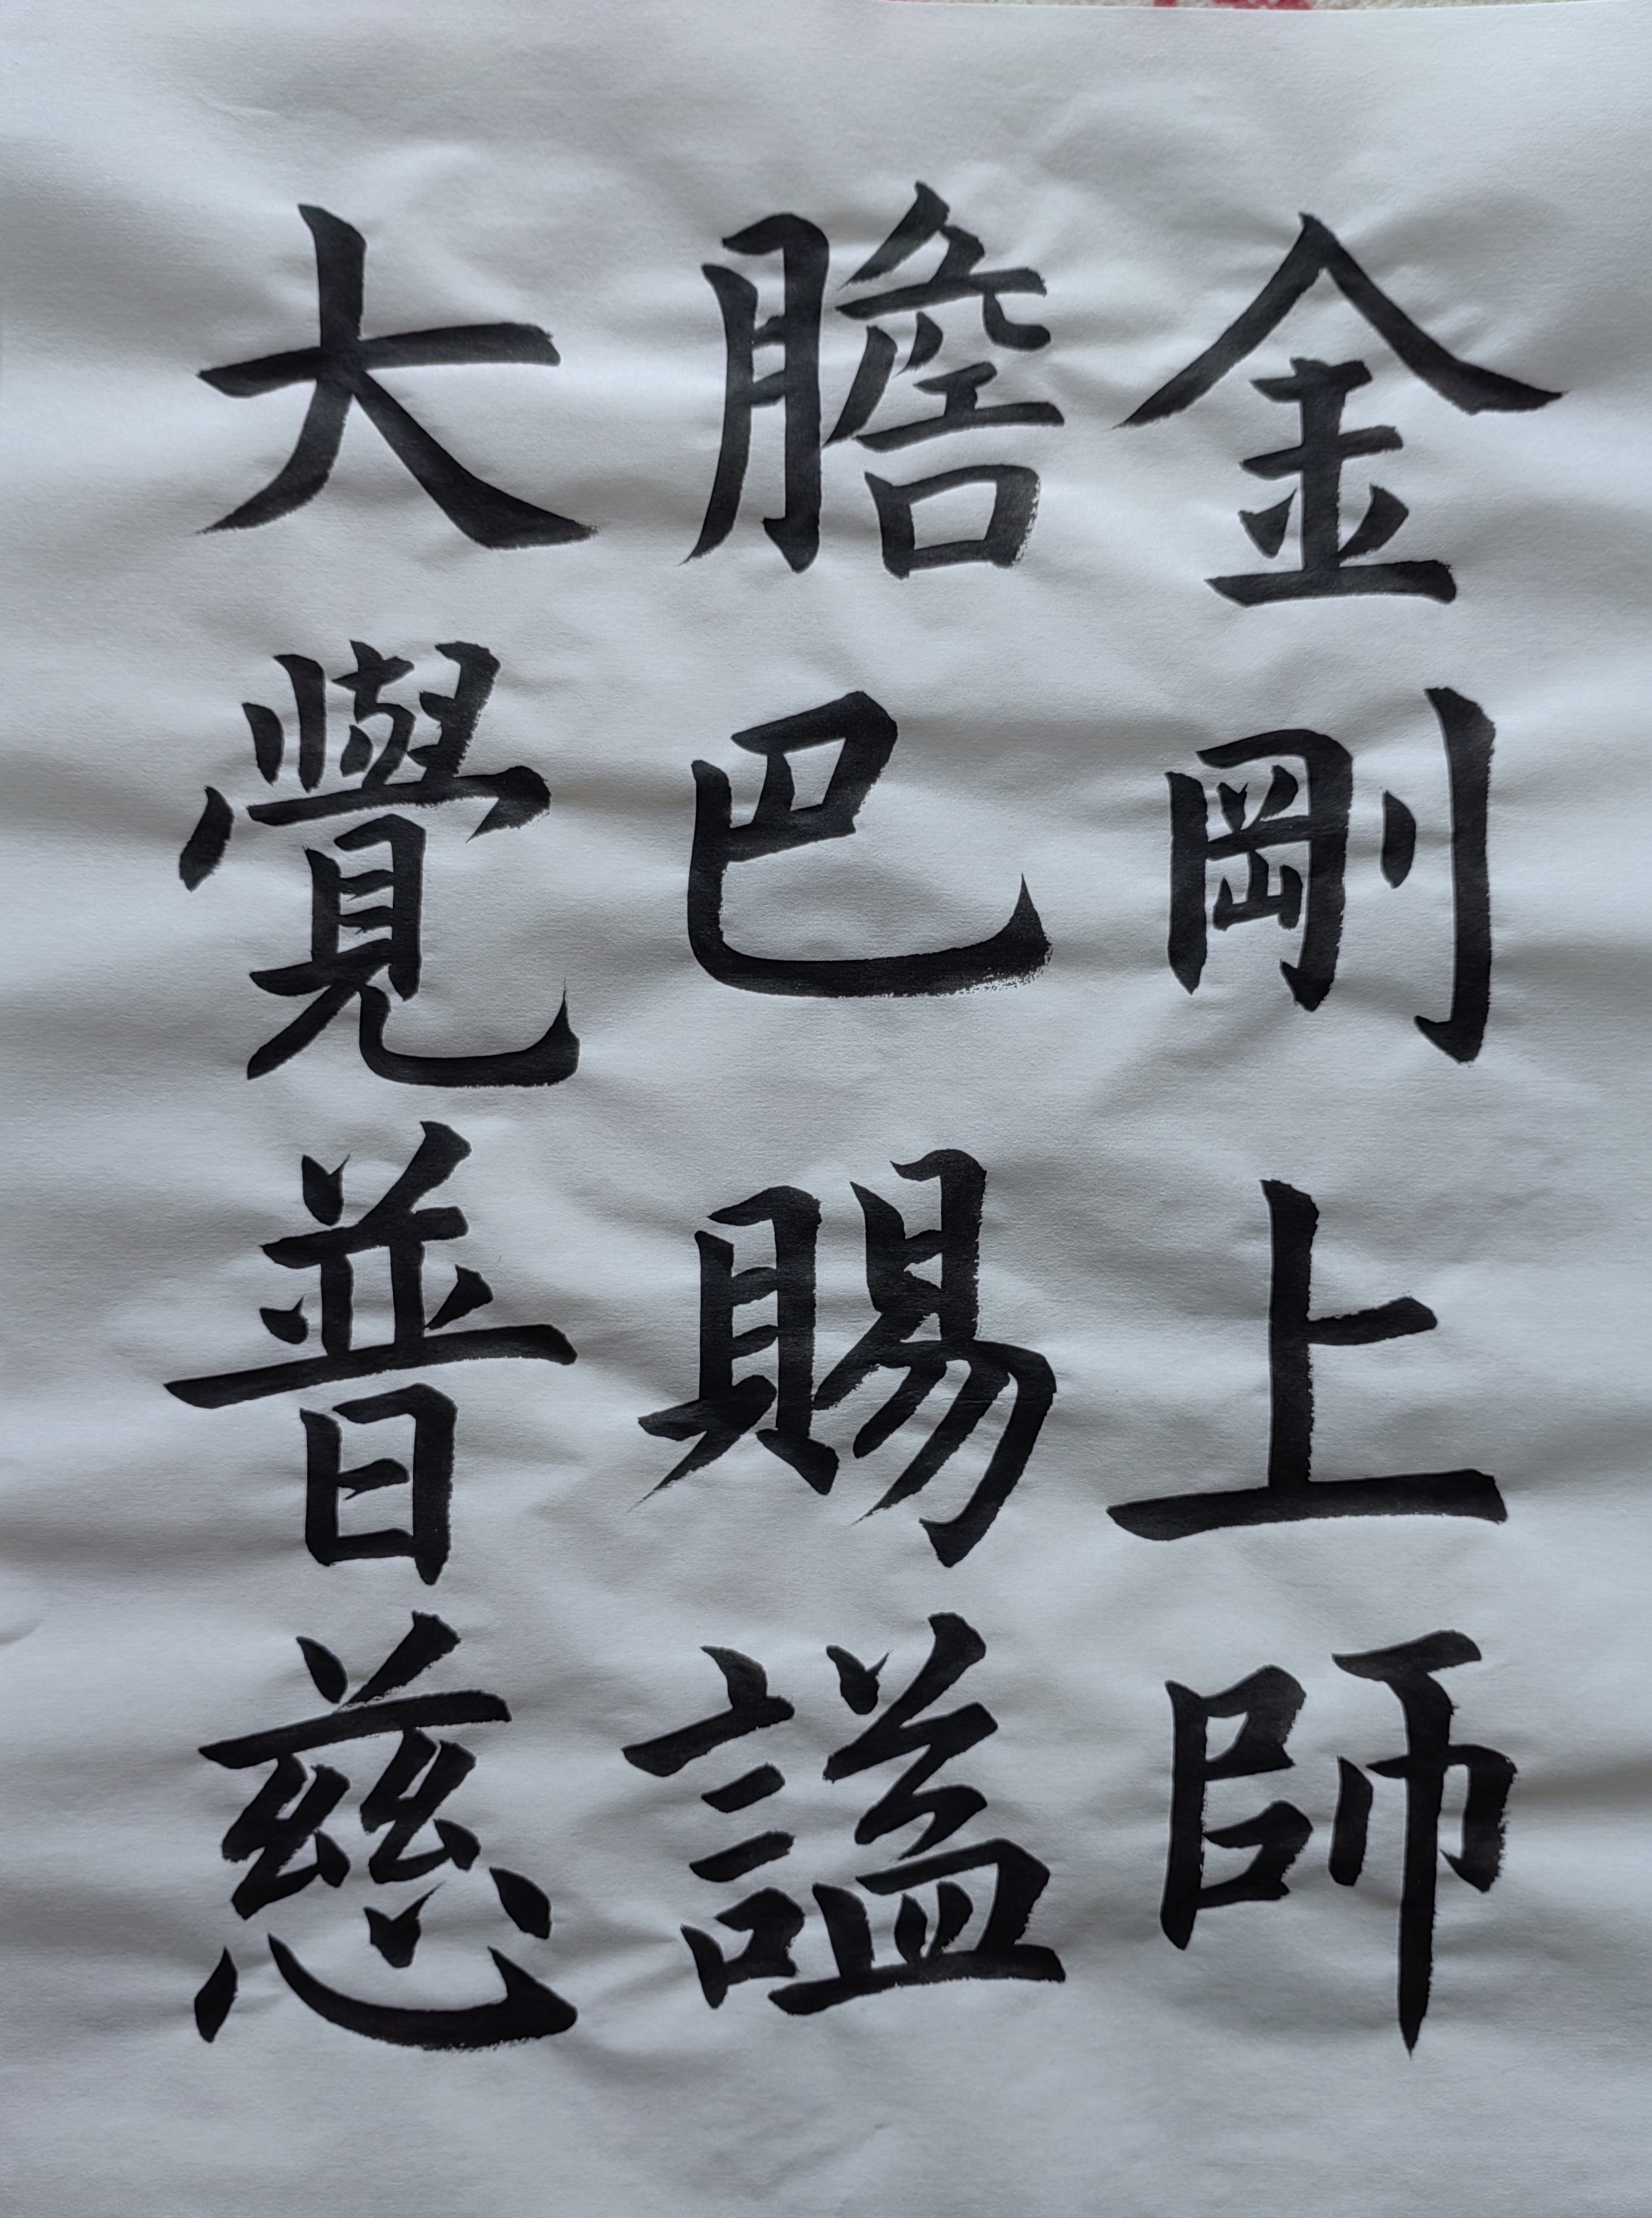 金剛上師
膽巴賜謚
大覺普慈